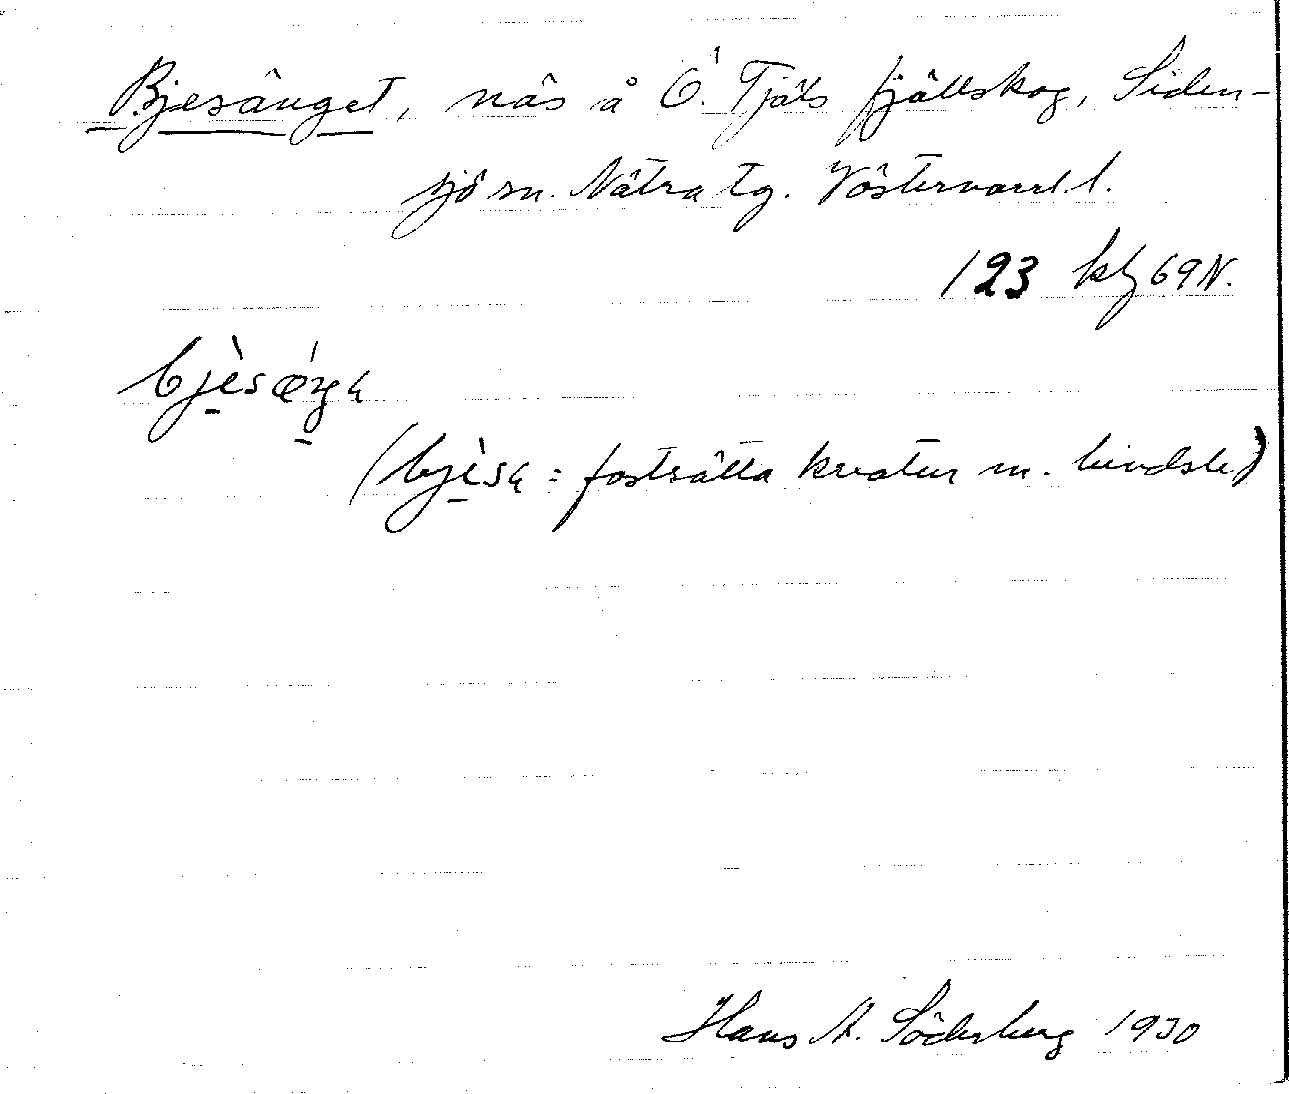 Bjesänget, näs å Ö. Tjäls fjällskog, Siden-
sjö sn. Nätra tg. Västernorrl. l.
123 kbl 69N.
bjès
(bjìsa = fastsätta kreatur m. bindsle)
Hans A. Söderberg 1930